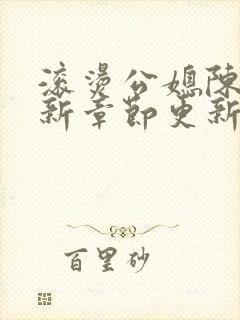 滚烫公媳陈
新章节更新
百里砂